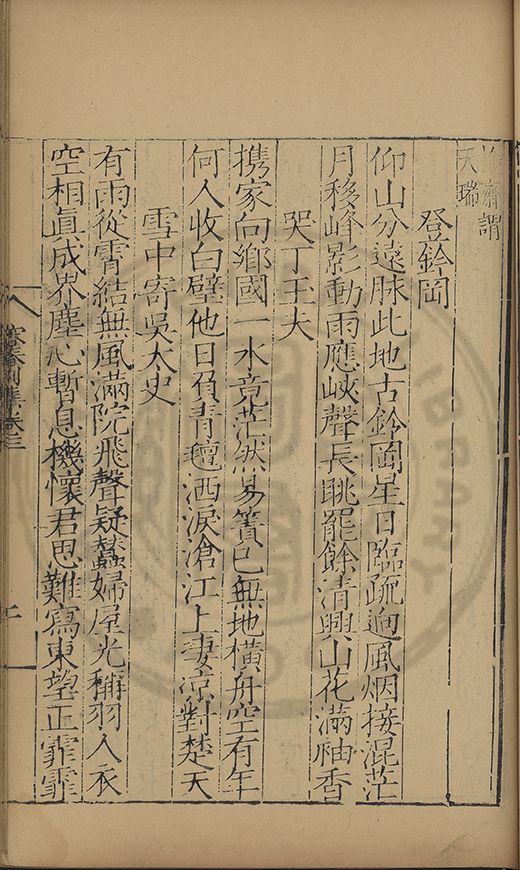 齋謂
天瑞
登鈐岡
仰山分遠脉此地古鈐岡星日臨疏逈風烟接混茫
月移峰影動雨應峽聲長眺罷餘清興山花滿䄂香
哭丁玉大
携家向鄉國一水竟茫然易簀已無地橫舟空有年
何人收白璧他日負青氊洒淚滄江上凄凉對楚天
雪中寄吳太史
有雨從霄結無風滿院飛聲疑蠶婦屋光稱羽人衣
空相眞成界塵心暫息機懷君思難寫東望正霏霏
卷三